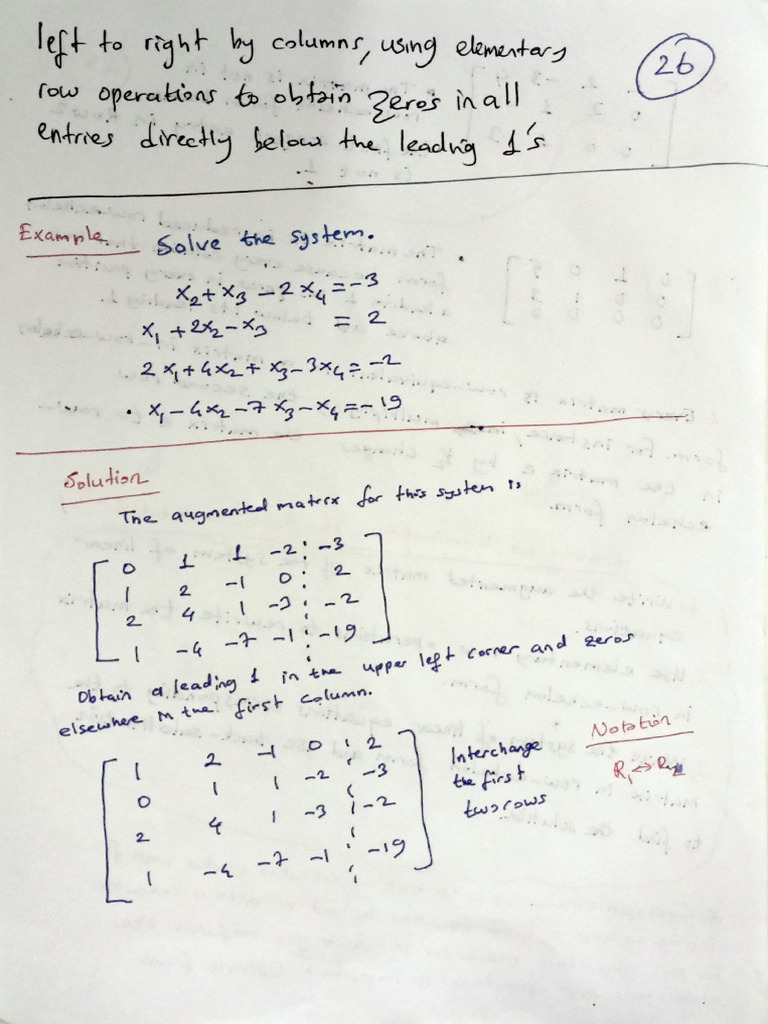 left to right by columns, using elementary
26
row operations to obtain zeros in all
entries directly below the leading 1's
Example Solve the system.
x₂ + x₃ - 2x₄ = -3
x₁ + 2x₂ - x₃ = 2
2x₁ + 4x₂ + x₃ - 3x₄ = -2
x₁ - 4x₂ - 7x₃ - x₄ = -19
Solution
The augmented matrix for this system is
0 1 1 -2 -3
1 2 -1 0 2
2 4 1 -3 -2
1 -4 -7 -1 -19
Obtain a leading 1 in the upper left corner and zeros
elsewhere in the first column.
1 2 -1 0 2
0 1 1 -2 -3
2 4 1 -3 -2
1 -4 -7 -1 -19
Interchange
the first
two rows
Notation
R₁ ↔ R₂